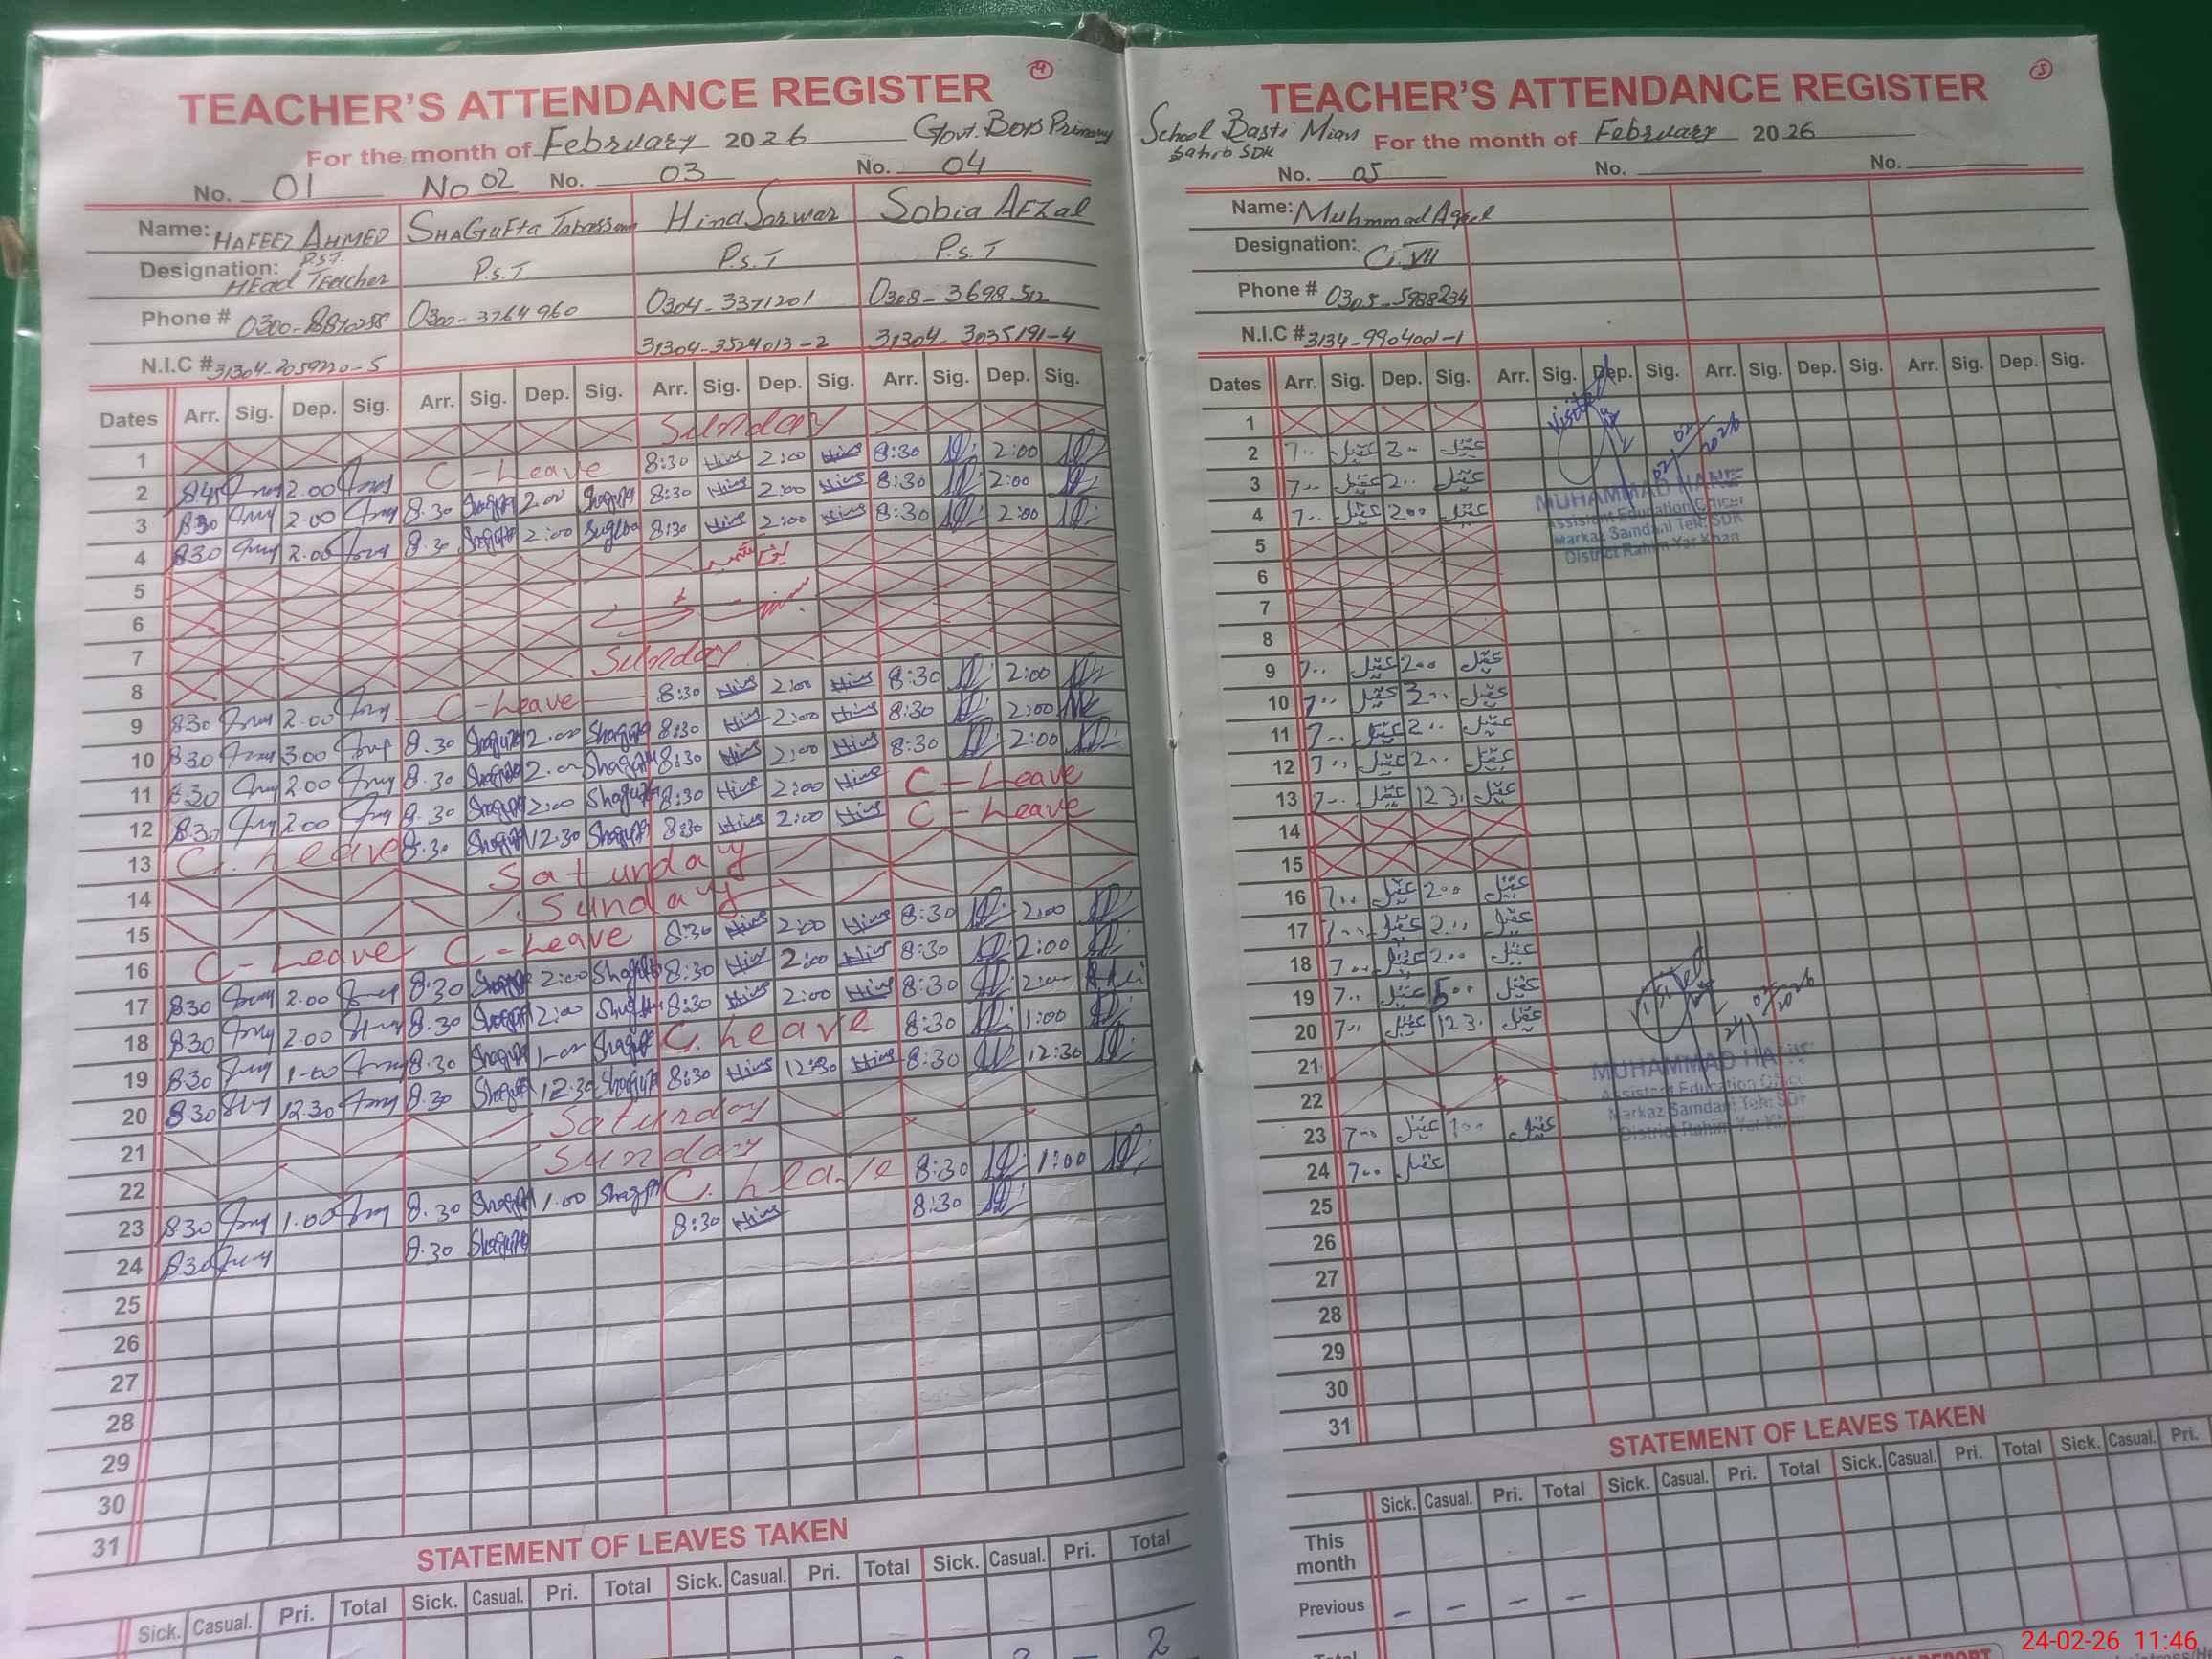 TEACHER'S ATTENDANCE REGISTER
For the month of February 2026 Govt. Boys Primary
No. 01 No 02 No. 03 No. 04
Name: HAFEEZ AHMED SHAGUFTA Tabassum Hina Sarwar Sobia AFZal
Designation: P.S.T. HEad Teacher P.s.T P.s.T P.s.T
Phone # 0300-8870258 0300-3764960 0304-3371201 0308-3698512
N.I.C # 31304-2059220-5 31304-3524013-2 31304-3035191-4
Dates Arr. Sig. Dep. Sig. Arr. Sig. Dep. Sig. Arr. Sig. Dep. Sig. Arr. Sig. Dep. Sig.
1 Sunday
2 845 2.00 C-Leave 8:30 Hina 2:00 Hina 8:30 2:00
3 830 2.00 8.30 Shagufta 2.00 Shagufta 8:30 Hina 2:00 Hina 8:30 2:00
4 830 2.00 8.30 Shagufta 2:00 8:30 Hina 2:00 Hina 8:30 2:00
5
6
7
8 Sunday
9 830 2.00 C-Leave 8:30 Hina 2:00 Hina 8:30 2:00
10 830 3.00 8.30 Shagufta 2.00 Shagufta 8:30 Hina 2:00 Hina 8:30 2:00
11 830 2.00 8.30 Shagufta 2.00 Shagufta 8:30 Hina 2:00 Hina 8:30 2:00
12 830 2.00 8.30 Shagufta 2:00 Shagufta 8:30 Hina 2:00 Hina C-Leave
13 C.Leave 8.30 Shagufta 12.30 Shagufta 8:30 Hina 2:00 Hina C-Leave
14 Saturday
15 Sunday
16 C-Leave C-Leave 8:30 Hina 2:00 Hina 8:30 2:00
17 830 2.00 8.30 Shagufta 2:00 Shagufta 8:30 Hina 2:00 Hina 8:30 2:00
18 830 2.00 8.30 Shagufta 2:00 Shagufta 8:30 Hina 2:00 Hina 8:30 2:00
19 830 1-00 8.30 Shagufta 1-00 Shagufta C.Leave 8:30 1:00
20 830 12.30 8.30 Shagufta 12.30 Shagufta 8:30 Hina 12:30 Hina 8:30 12:30
21 Saturday
22 Sunday
23 830 1.00 8.30 Shagufta 1.00 Shagufta C.Leave 8:30 1:00
24 830 8.30 Shagufta 8:30 Hina 8:30
25
26
27
28
29
30
31
STATEMENT OF LEAVES TAKEN
Sick. Casual. Pri. Total Sick. Casual. Pri. Total Sick. Casual. Pri. Total Sick. Casual. Pri. Total
2 - 2
TEACHER'S ATTENDANCE REGISTER
School Basti Mian Sahib SDK For the month of February 2026
No. 05 No. No.
Name: Muhmmad Aqeel
Designation: C.VII
Phone # 0305-5988234
N.I.C # 3134-9904001-1
Dates Arr. Sig. Dep. Sig. Arr. Sig. Dep. Sig. Arr. Sig. Dep. Sig. Arr. Sig. Dep. Sig.
1
2 7.. عقیل 3.. عقیل
3 7.. عقیل 2.. عقیل
4 7.. عقیل 200 عقیل
5
6
7
8
9 7.. عقیل 200 عقیل
10 7.. عقیل 3.. عقیل
11 7.. عقیل 2.. عقیل
12 7.. عقیل 2.. عقیل
13 7.. عقیل 123. عقیل
14
15
16 7.. عقیل 200 عقیل
17 7.. عقیل 2.. عقیل
18 7.. عقیل 200 عقیل
19 7.. عقیل عقیل
20 7.. عقیل 123. عقیل
21
22
23 7.. عقیل 1.. عقیل
24 7.. عقیل
25
26
27
28
29
30
31
Visited
02/02/2026
MUHAMMAD HANIF
Assistant Education Officer
Markaz Samdani Teh: SDK
District Rahim Yar Khan
Visited
24/02/2026
MUHAMMAD HANIF
Assistant Education Officer
Markaz Samdani Teh: SDK
District Rahim Yar Khan
STATEMENT OF LEAVES TAKEN
Sick. Casual. Pri. Total Sick. Casual. Pri. Total Sick. Casual. Pri. Total Sick. Casual. Pri.
This month
Previous - - - -
Total
24-02-26 11:46